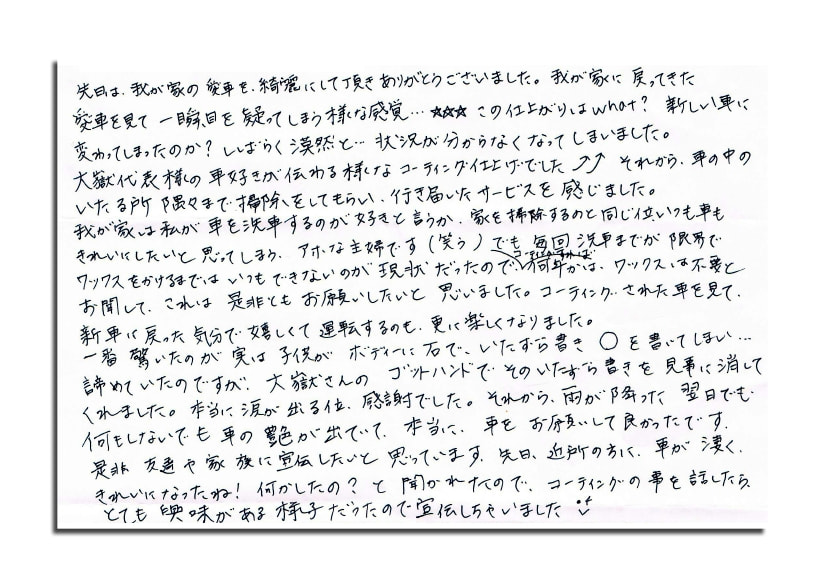 先日は、我が家の愛車を、綺麗にして頂きありがとうございました。我が家に戻ってきた
愛車を見て一瞬目を疑ってしまう様な感覚…☆☆☆この仕上がりはwhat? 新しい車に
変わってしまったのか?しばらく漠然と…状況が分からなくなってしまいました。
大嶽代表様の車好きが伝わる様なコーティング仕上げでした⤴⤴それから、車の中の
いたる所隅々まで掃除をしてもらい、行き届いたサービスを感じました。
我が家は私が車を洗車するのが好きと言うか、家を掃除するのと同じ位いつも車も
きれいにしたいと思ってしまう、アホな主婦です(笑う)でも毎回洗車までが限界で
ワックスをかけるまではいつもできないのが現状だったので、コーティングすれば何年かは、ワックスは不要と
お聞して、これは是非ともお願いしたいと思いました。コーティングされた車を見て、
新車に戻った気分で嬉しくて運転するのも、更に楽しくなりました。
一番驚いたのが実は子供がボディーに石で、いたずら書き○を書いてしまい…
諦めていたのですが、大嶽さんのゴットハンドでそのいたずら書きを見事に消して
くれました。本当に涙が出る位、感謝でした。それから、雨が降った翌日でも
何もしないでも車の艶が出ていて、本当に、車をお願いして良かったです。
是非友達や家族に宣伝したいと思っています。先日、近所の方に、車が凄く、
きれいになったね!何かしたの?と聞かれたので、コーティングの事を話したら、
とても興味がある様子だったので宣伝しちゃいました